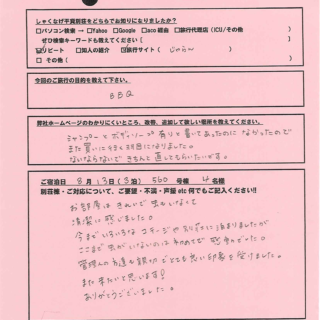 しゃくなげ平貸別荘をどちらでお知りになりましたか?
□パソコン検索 → □Yahoo □Google □aco経由 □旅行代理店 (ICU/その他 )
ぜひ検索キーワードも教えてください ( )
☑リピート □知人の紹介 ☑旅行サイト ( じゃらん )
□ その他 ( )
今回のご旅行の目的を教えて下さい。
BBQ
弊社ホームページのわかりにくいところ、改善、追加して欲しい箇所を教えてください。
シャンプーとボディソープ有りと書いてあったのになかったので
また買いに行く羽目になりました。
ないならないできちんと直してもらいたいです。
ご宿泊日 8月 13日(3泊) 560 号棟 4 名様
別荘棟・ご対応について、ご要望・不満・声援 etc 何でもご記入ください!!
お部屋はきれいで虫もいなくて
清潔に感じました。
今までいろいろなコテージや貸別荘に泊まりましたが
ここまで虫がいないのは初めてで感動でした。
管理人の方達も親切でとても良い印象を受けました。
また来たいと思います!
ありがとうございました。